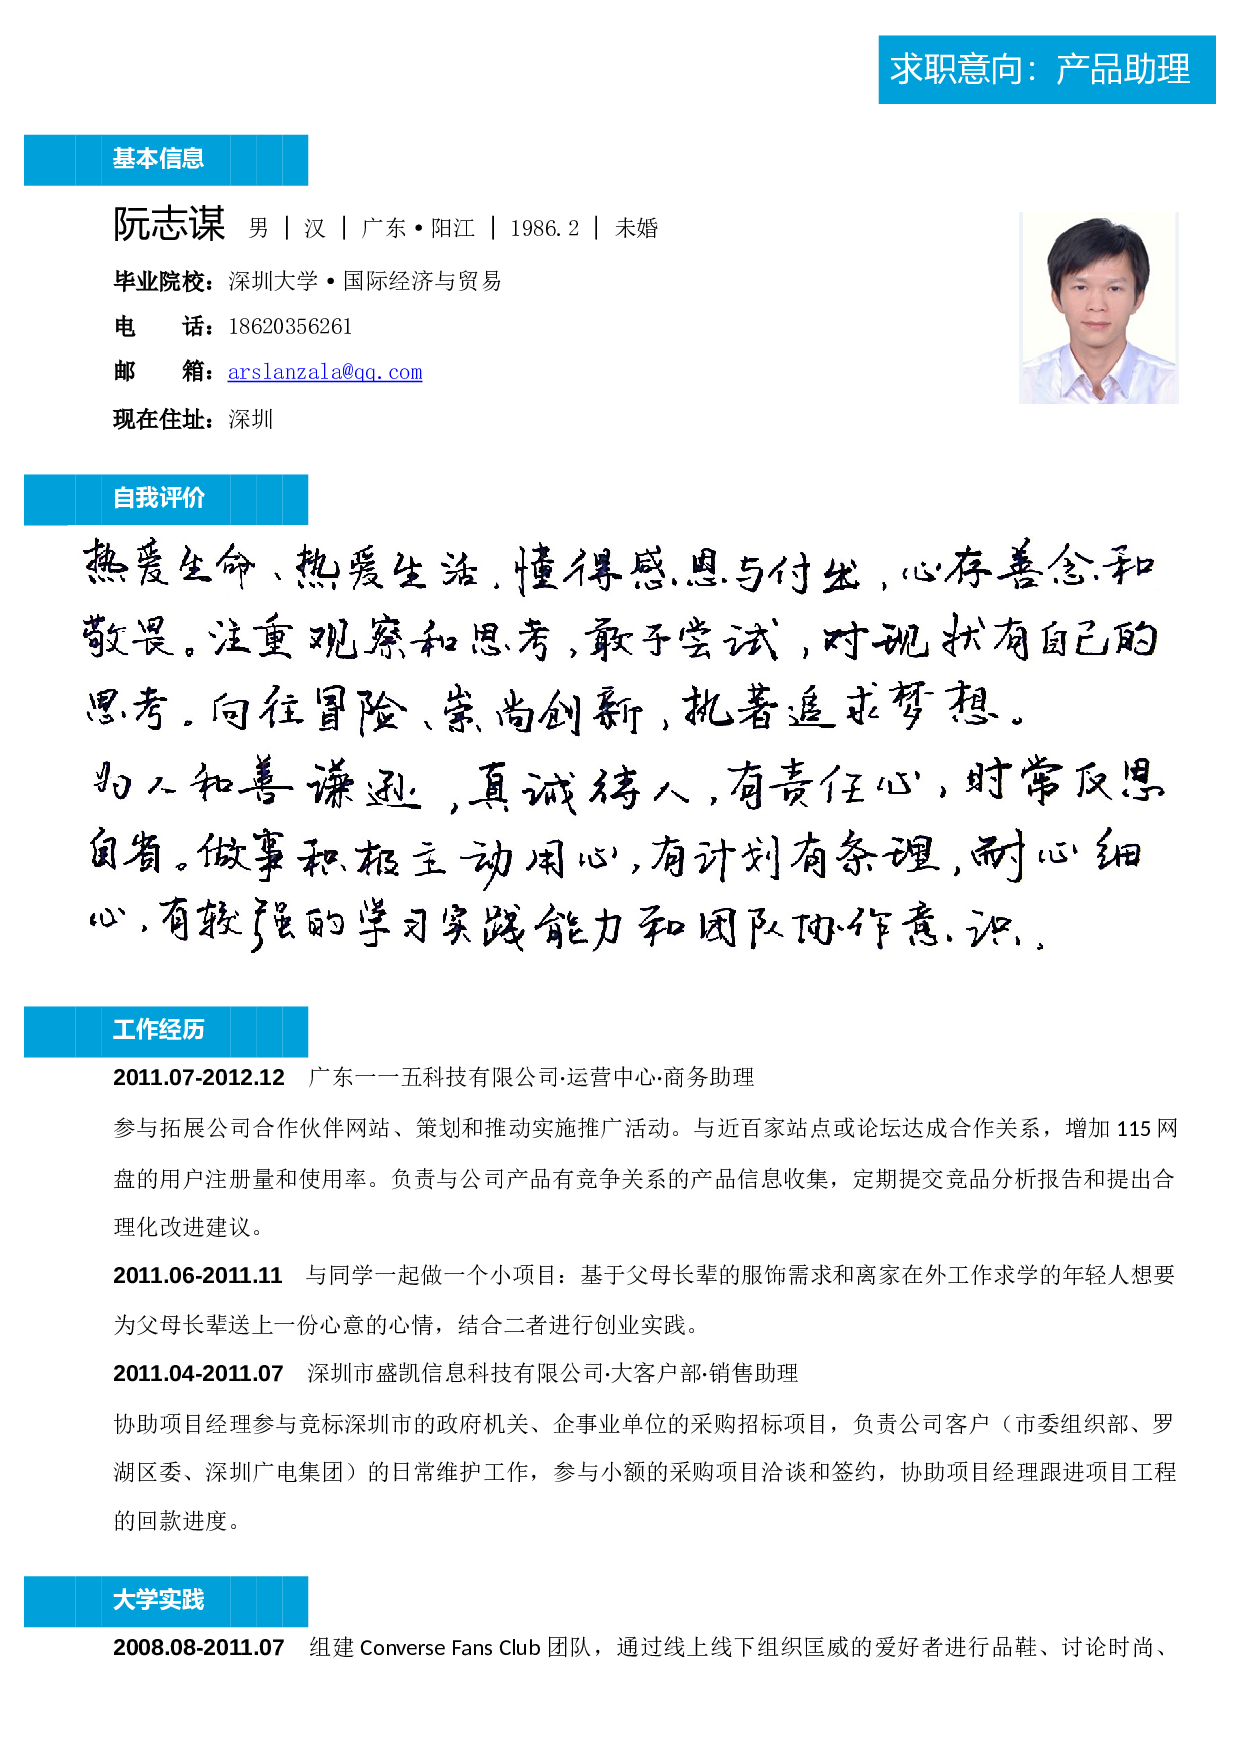 求职意向：产品助理
基本信息
阮志谋 男 | 汉 | 广东•阳江 | 1986.2 | 未婚
毕业院校：深圳大学•国际经济与贸易
电 话：18620356261
邮 箱：arslanzala@qq.com
现在住址：深圳
自我评价
热爱生命、热爱生活，懂得感恩与付出，心存善念和
敬畏。注重观察和思考，敢于尝试，对现状有自己的
思考。向往冒险、崇尚创新，执著追求梦想。
为人和善谦逊，真诚待人，有责任心，时常反思
自省。做事积极主动用心，有计划有条理，耐心细
心，有较强的学习实践能力和团队协作意识。
工作经历
2011.07-2012.12 广东一一五科技有限公司·运营中心·商务助理
参与拓展公司合作伙伴网站、策划和推动实施推广活动。与近百家站点或论坛达成合作关系，增加 115 网
盘的用户注册量和使用率。负责与公司产品有竞争关系的产品信息收集，定期提交竞品分析报告和提出合
理化改进建议。
2011.06-2011.11 与同学一起做一个小项目：基于父母长辈的服饰需求和离家在外工作求学的年轻人想要
为父母长辈送上一份心意的心情，结合二者进行创业实践。
2011.04-2011.07 深圳市盛凯信息科技有限公司·大客户部·销售助理
协助项目经理参与竞标深圳市的政府机关、企事业单位的采购招标项目，负责公司客户（市委组织部、罗
湖区委、深圳广电集团）的日常维护工作，参与小额的采购项目洽谈和签约，协助项目经理跟进项目工程
的回款进度。
大学实践
2008.08-2011.07 组建 Converse Fans Club 团队，通过线上线下组织匡威的爱好者进行品鞋、讨论时尚、